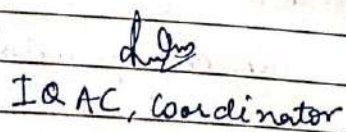 IQAC, Coordinator